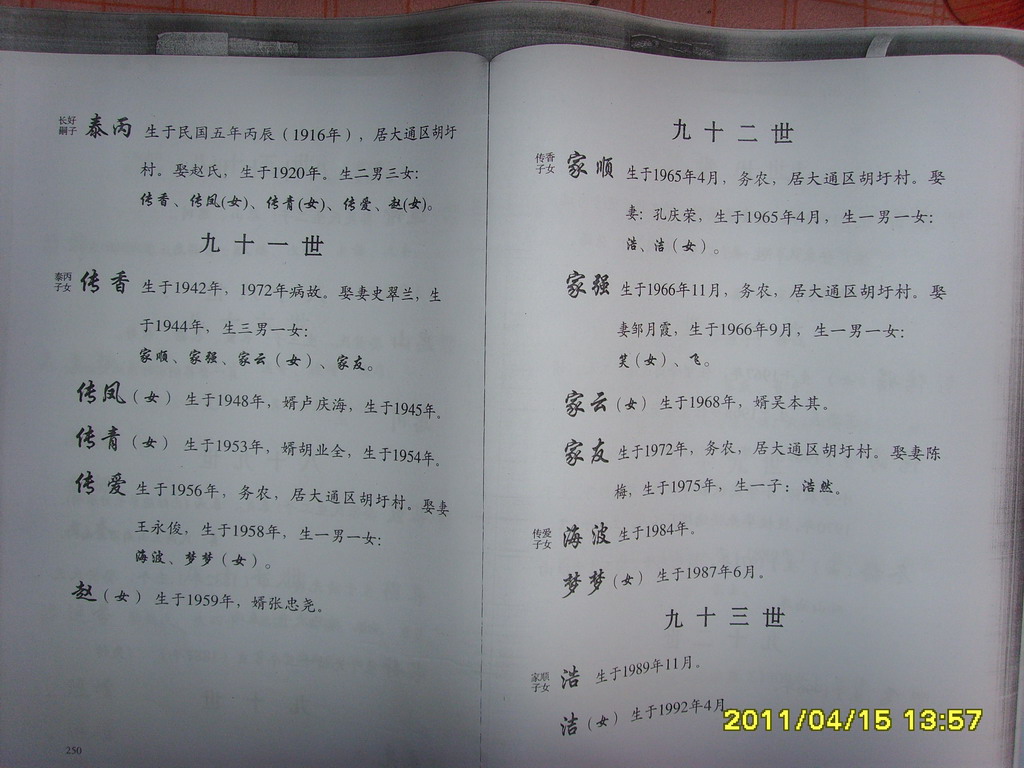 长好
嗣子
泰丙 生于民国五年丙辰（1916年），居大通区胡圩
村。娶赵氏，生于1920年。生二男三女：
传香、传凤(女)、传青(女)、传爱、赵(女)。
九十一世
泰丙
子女
传香 生于1942年，1972年病故。娶妻史翠兰，生
于1944年，生三男一女：
家顺、家强、家云（女）、家友。
传凤（女） 生于1948年，婿卢庆海，生于1945年。
传青（女） 生于1953年，婿胡业全，生于1954年。
传爱 生于1956年，务农，居大通区胡圩村。娶妻
王永俊，生于1958年，生一男一女：
海波、梦梦（女）。
赵（女） 生于1959年，婿张忠尧。
250
九十二世
传香
子女
家顺 生于1965年4月，务农，居大通区胡圩村。娶
妻：孔庆荣，生于1965年4月，生一男一女：
浩、洁（女）。
家强 生于1966年11月，务农，居大通区胡圩村。娶
妻邹月霞，生于1966年9月，生一男一女：
笑（女）、飞。
家云（女） 生于1968年，婿吴本其。
家友 生于1972年，务农，居大通区胡圩村。娶妻陈
梅，生于1975年，生一子：浩然。
传爱
子女
海波 生于1984年。
梦梦（女） 生于1987年6月。
九十三世
家顺
子女
浩 生于1989年11月。
洁（女） 生于1992年4月
2011/04/15 13:57